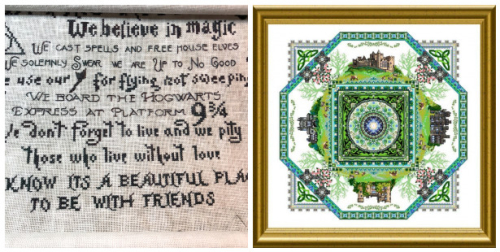 We believe in magic
WE CAST SPELLS AND FREE HOUSE ELVES
WE SOLEMNLY SWEAR WE ARE UP TO NO GOOD
use our for flying, not sweeping
WE BOARD THE HOGWARTS
EXPRESS AT PLATFORM 9¾
We don't forget to live and we pity
those who live without love
KNOW ITS A BEAUTIFUL
TO BE WITH FRIENDS